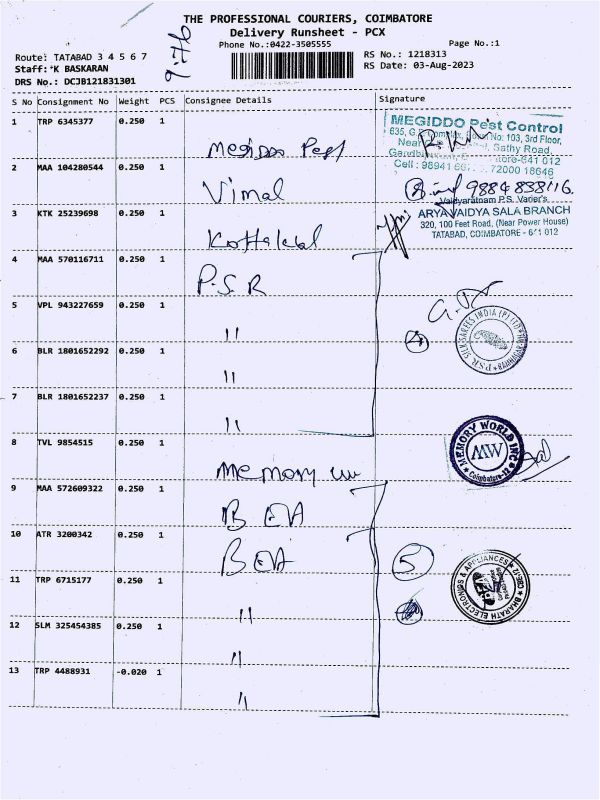 THE PROFESSIONAL COURIERS, COIMBATORE
Delivery Runsheet - PCX
Phone No.:0422-3505555
Page No.:1
Route: TATABAD 3 4 5 6 7
Staff: K BASKARAN
DRS No.: DCJB121831301
RS No.: 1218313
RS Date: 03-Aug-2023
S No Consignment No Weight PCS Consignee Details Signature
1 TRP 6345377 0.250 1 Megiddo Pest
MEGIDDO Pest Control
No: 103, 3rd Floor,
Sathy Road,
641 012
72000 18646
2 MAA 104280544 0.250 1 Vimal
9884838116.
3 KTK 25239698 0.250 1 Kottakkal
Vaidyaratnam P.S. Varier's
ARYA VAIDYA SALA BRANCH
320, 100 Feet Road, (Near Power House)
TATABAD, COIMBATORE - 641 012
4 MAA 570116711 0.250 1 P.S.R
5 VPL 943227659 0.250 1 "
4
P.S.R SILK SAREES INDIA (P) LTD
6 BLR 1801652292 0.250 1 "
7 BLR 1801652237 0.250 1 "
8 TVL 9854515 0.250 1 Memory
MEMORY WORLD INC
MW
Coimbatore-12
9 MAA 572609322 0.250 1 BEA
10 ATR 3200342 0.250 1 BEA
5
BHARATH ELECTRONICS & APPLIANCES
11 TRP 6715177 0.250 1 "
12 SLM 325454385 0.250 1 "
13 TRP 4488931 -0.020 1 "